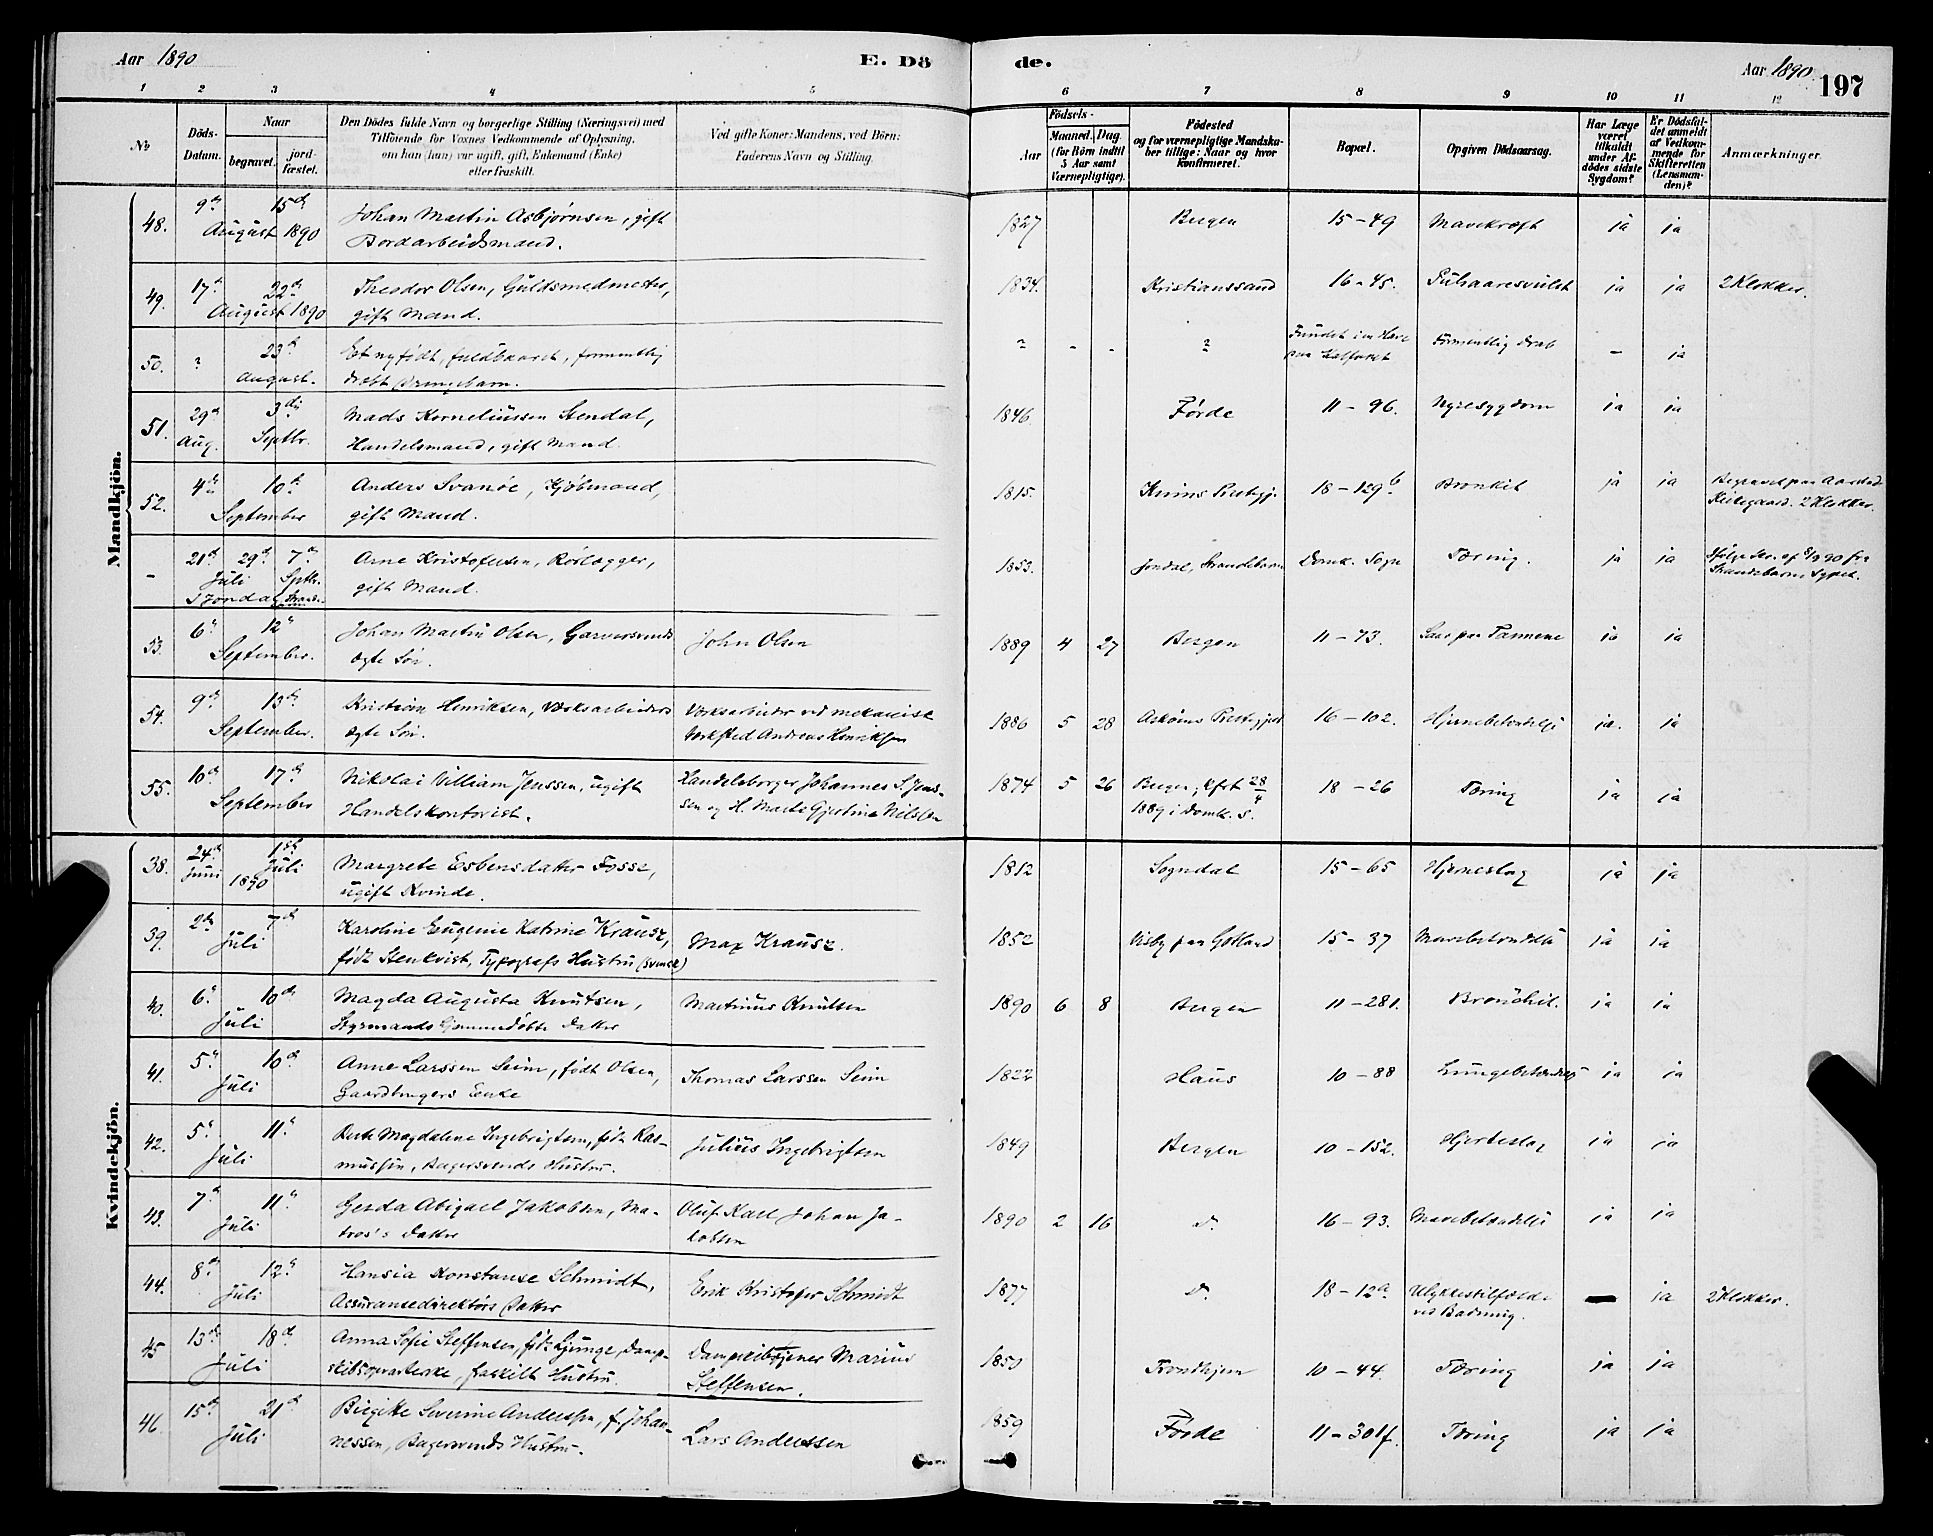 Aar 1890 E. Dö de. Aar 1890. 197
1 2 3 4 5 6 7 8 9 10 11 12
No
Döds-Datum.
Naar
begravet. jord-fæstet.
Den Dödes fulde Navn og borgerlige Stilling (Næringsvei) med
Tilföiende for Voxnes Vedkommende af Oplysning,
om han (hun) var ugift, gift, Enkemand (Enke)
eller fraskilt.
Ved gifte Koner: Mandens, ved Börn:
Faderens Navn og Stilling.
Födsels-
Aar Maaned. Dag.
(for Börn indtil
5 Aar samt
Værnepligtige).
Födested
og for værnepligtige Mandska-
ber tillige: Naar og hvor
konfirmeret.
Bopæl.
Opgiven Dödsaarsag.
Har Læge
været
tilkaldt
under Af-
dödes sidste
Sygdom?
Er Dödsfal-
det anmeldt
af Vedkom-
mende for
Skifteretten
(Lensman-
den)?
Anmærkninger.
Mandkjön.
48. 9de 15de Johan Martin Asbjørnsen, gift 1827 Bergen 15-49 Mavekræft ja ja
August 1890 Bordarbeidsmand.
49. 17de 22de Theodor Olsen, Guldsmedmester, 1834. Kristianssand 16-45. Pulsaaresvulst ja ja 2 Klokker.
August 1890 gift Mand.
50. ? 23de Et nyfödt, fuldbaaret, formentlig ? - - ? Fundet i en Have Formentlig Drab - ja
August. dræbt Drengebarn. paa Kalfaret
51. 29de 3die Mads Korneliussen Stendal, 1846. Förde 11-96. Nyresygdom ja ja
Aug. Septbr. Handelsmand, gift Mand.
52. 4de 10de Anders Svanöe, Kjøbmand, 1815. Kinns Prestegj. 18-129b Bronkit ja ja Begravet paa Aarstad
September gift Mand. Kirkegaard. 2 Klokker.
- 21de 29de 7de Arne Kristofersen, Rörlægger, 1853. Jondal, Strandebarm Domk. Sogn Tæring. ja ja
Juli Septbr. gift Mand.
I Jondal
53. 6te 12te Johan Martin Olsen, Garversvends John Olsen 1889 4 27 Bergen 11-73. ja ja
September. ægte Sön.
54. 9de 13de Kristian Henriksen, Værksarbeiders Værksarbeider ved mekanisk 1886 5 28 Askøens Prestegjeld 16-102. Hjernebetændelse ja. ja
September. ægte Sön. Værksted Andreas Henriksen
55. 10de 17de Nikolai William Jenssen, ugift Handelsborger Johannes S. Jens- 1874 5 26 Bergen, Kfrt 28/4 18-26 Tæring ja ja
September Handelskontorist. sen og H. Marta Gjertine Nilssen 1889 i Domk. S.
Kvindekjön.
38. 24de 1ste Margrete Esbensdatter Fosse, 1812 Sogndal 15-65 Hjerneslag ja ja
Juni 1890 Juli ugift Kvinde.
39. 2den 7de Karoline Eugenie Katrine Krausz, Max Krausz. 1852 Visby paa Gotland 15-37 Mavebetændelse ja ja
Juli født Stenkvist, Typografs Hustru (svensk)
40. 6te 10de Magda Augusta Knutsen, Martinus Knutsen 1890 6 8 Bergen 11-281. Bronchit. ja ja
Juli Styrmands Hjemmedøbte Datter
41. 5te 10de Anne Larssen Seim, født Olsen, Thomas Larssen Seim 1822 Haus 10-88 Lungebetændelse ja ja
Juli Gaardbrugers Enke
42. 5te 11te Magdalene Ingebrigtsen, født Ras- Julius Ingebrigtsen 1849 Bergen 10-152. Hjerteslag ja ja
Juli mussen, Bagersvends Hustru.
43. 7de 11te Gerda Abigael Jakobsen, Ma- Oluf Karl Johan Ja- 1890 2 16 Do. 16-93. Mavebetændelse ja ja
Juli tros's Datter kobsen
44. 8de 12te Hansia Konstanse Schmidt, Erik Kristofer Schmidt 1877 Do. 18-12a. Ulykkestilfælde - ja 2 Klokker.
Juli Assuransedirektørs Datter ved Badning.
45 13de 18de Anna Sofie Steffensen, født Ljunge, Damp- Dampskibstjener Marius 1850 Trondhjem 10-44. Tæring ja ja
Juli skibsopvarterske, fraskilt Hustru. Steffensen.
46. 15de 21de Birgitte Severine Anderssen, f. Johan- Lars Anderssen 1859 Förde 11-30lf. Tæring ja ja
Juli nessen, Bagersvends Hustru.